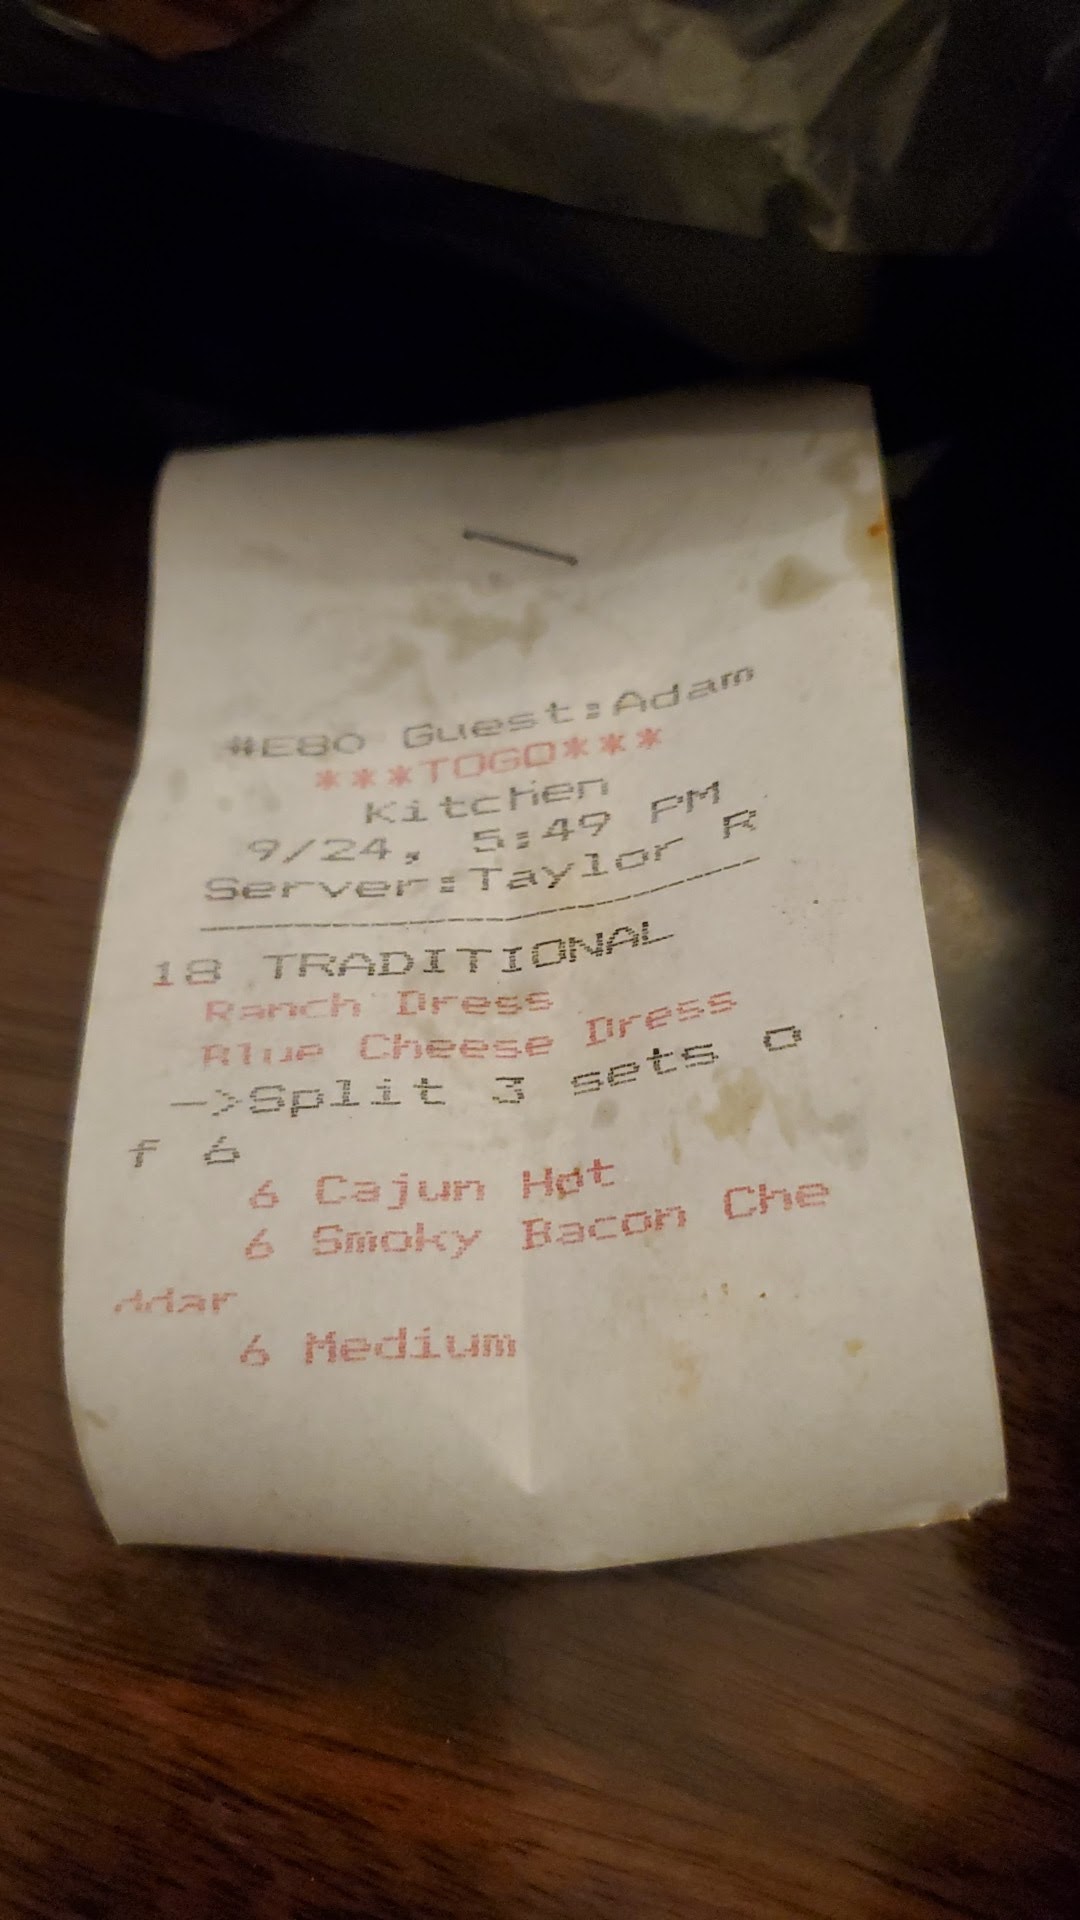 #E80 Guest:Adam
***TOGO***
Kitchen
9/24, 5:49 PM
Server:Taylor R
18 TRADITIONAL
Ranch Dress
Blue Cheese Dress
->Split 3 sets o
f 6
6 Cajun Hot
6 Smoky Bacon Che
ddar
6 Medium